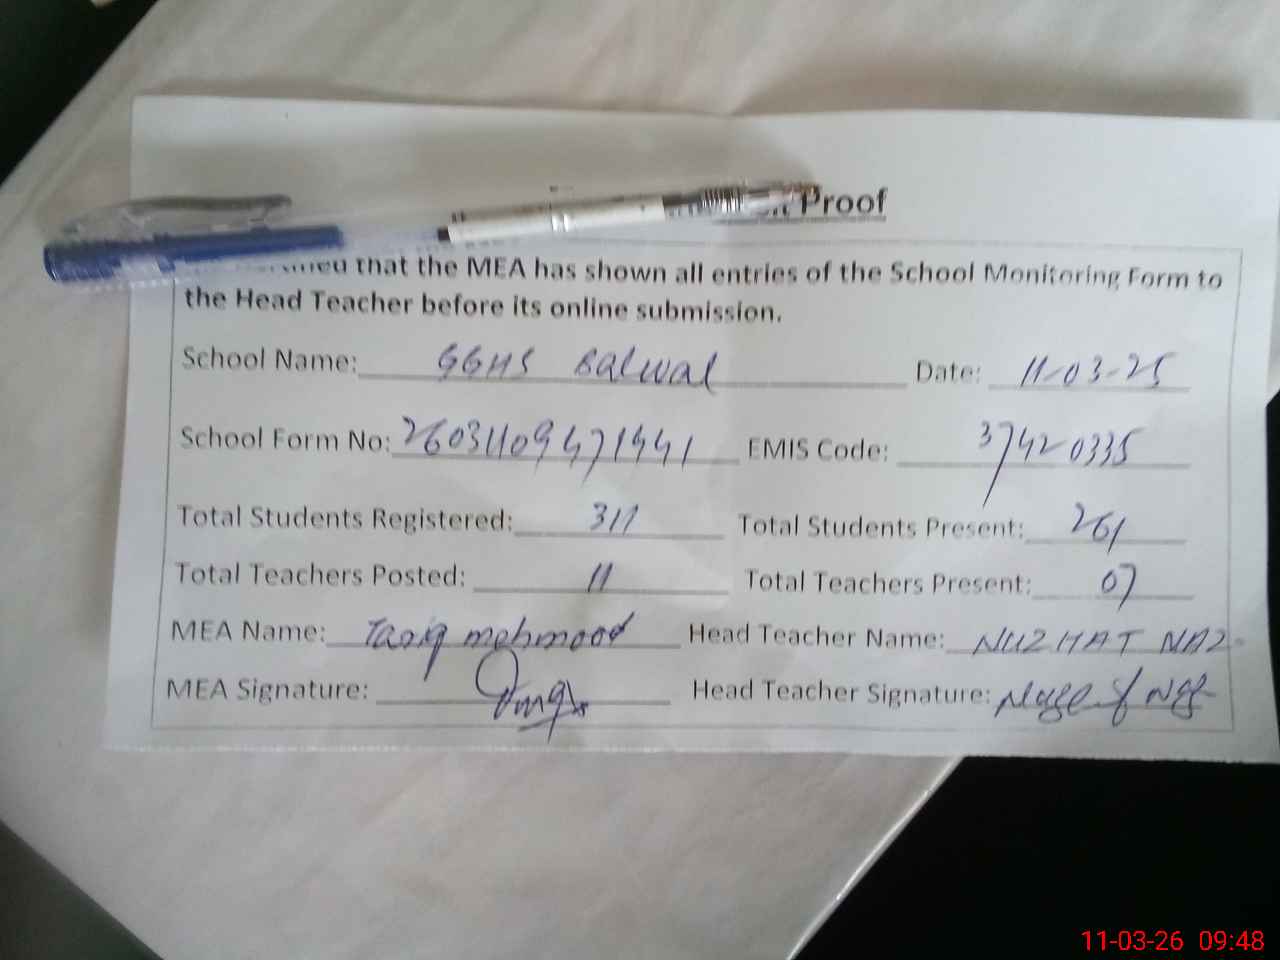 Proof
that the MEA has shown all entries of the School Monitoring Form to
the Head Teacher before its online submission.
School Name: GGHS Balwal Date: 11-03-25
School Form No: 26031109471941 EMIS Code: 37420335
Total Students Registered: 311 Total Students Present: 261
Total Teachers Posted: 11 Total Teachers Present: 07
MEA Name: Tariq mehmood Head Teacher Name: NUZHAT NAZ
MEA Signature: Head Teacher Signature:
11-03-26 09:48